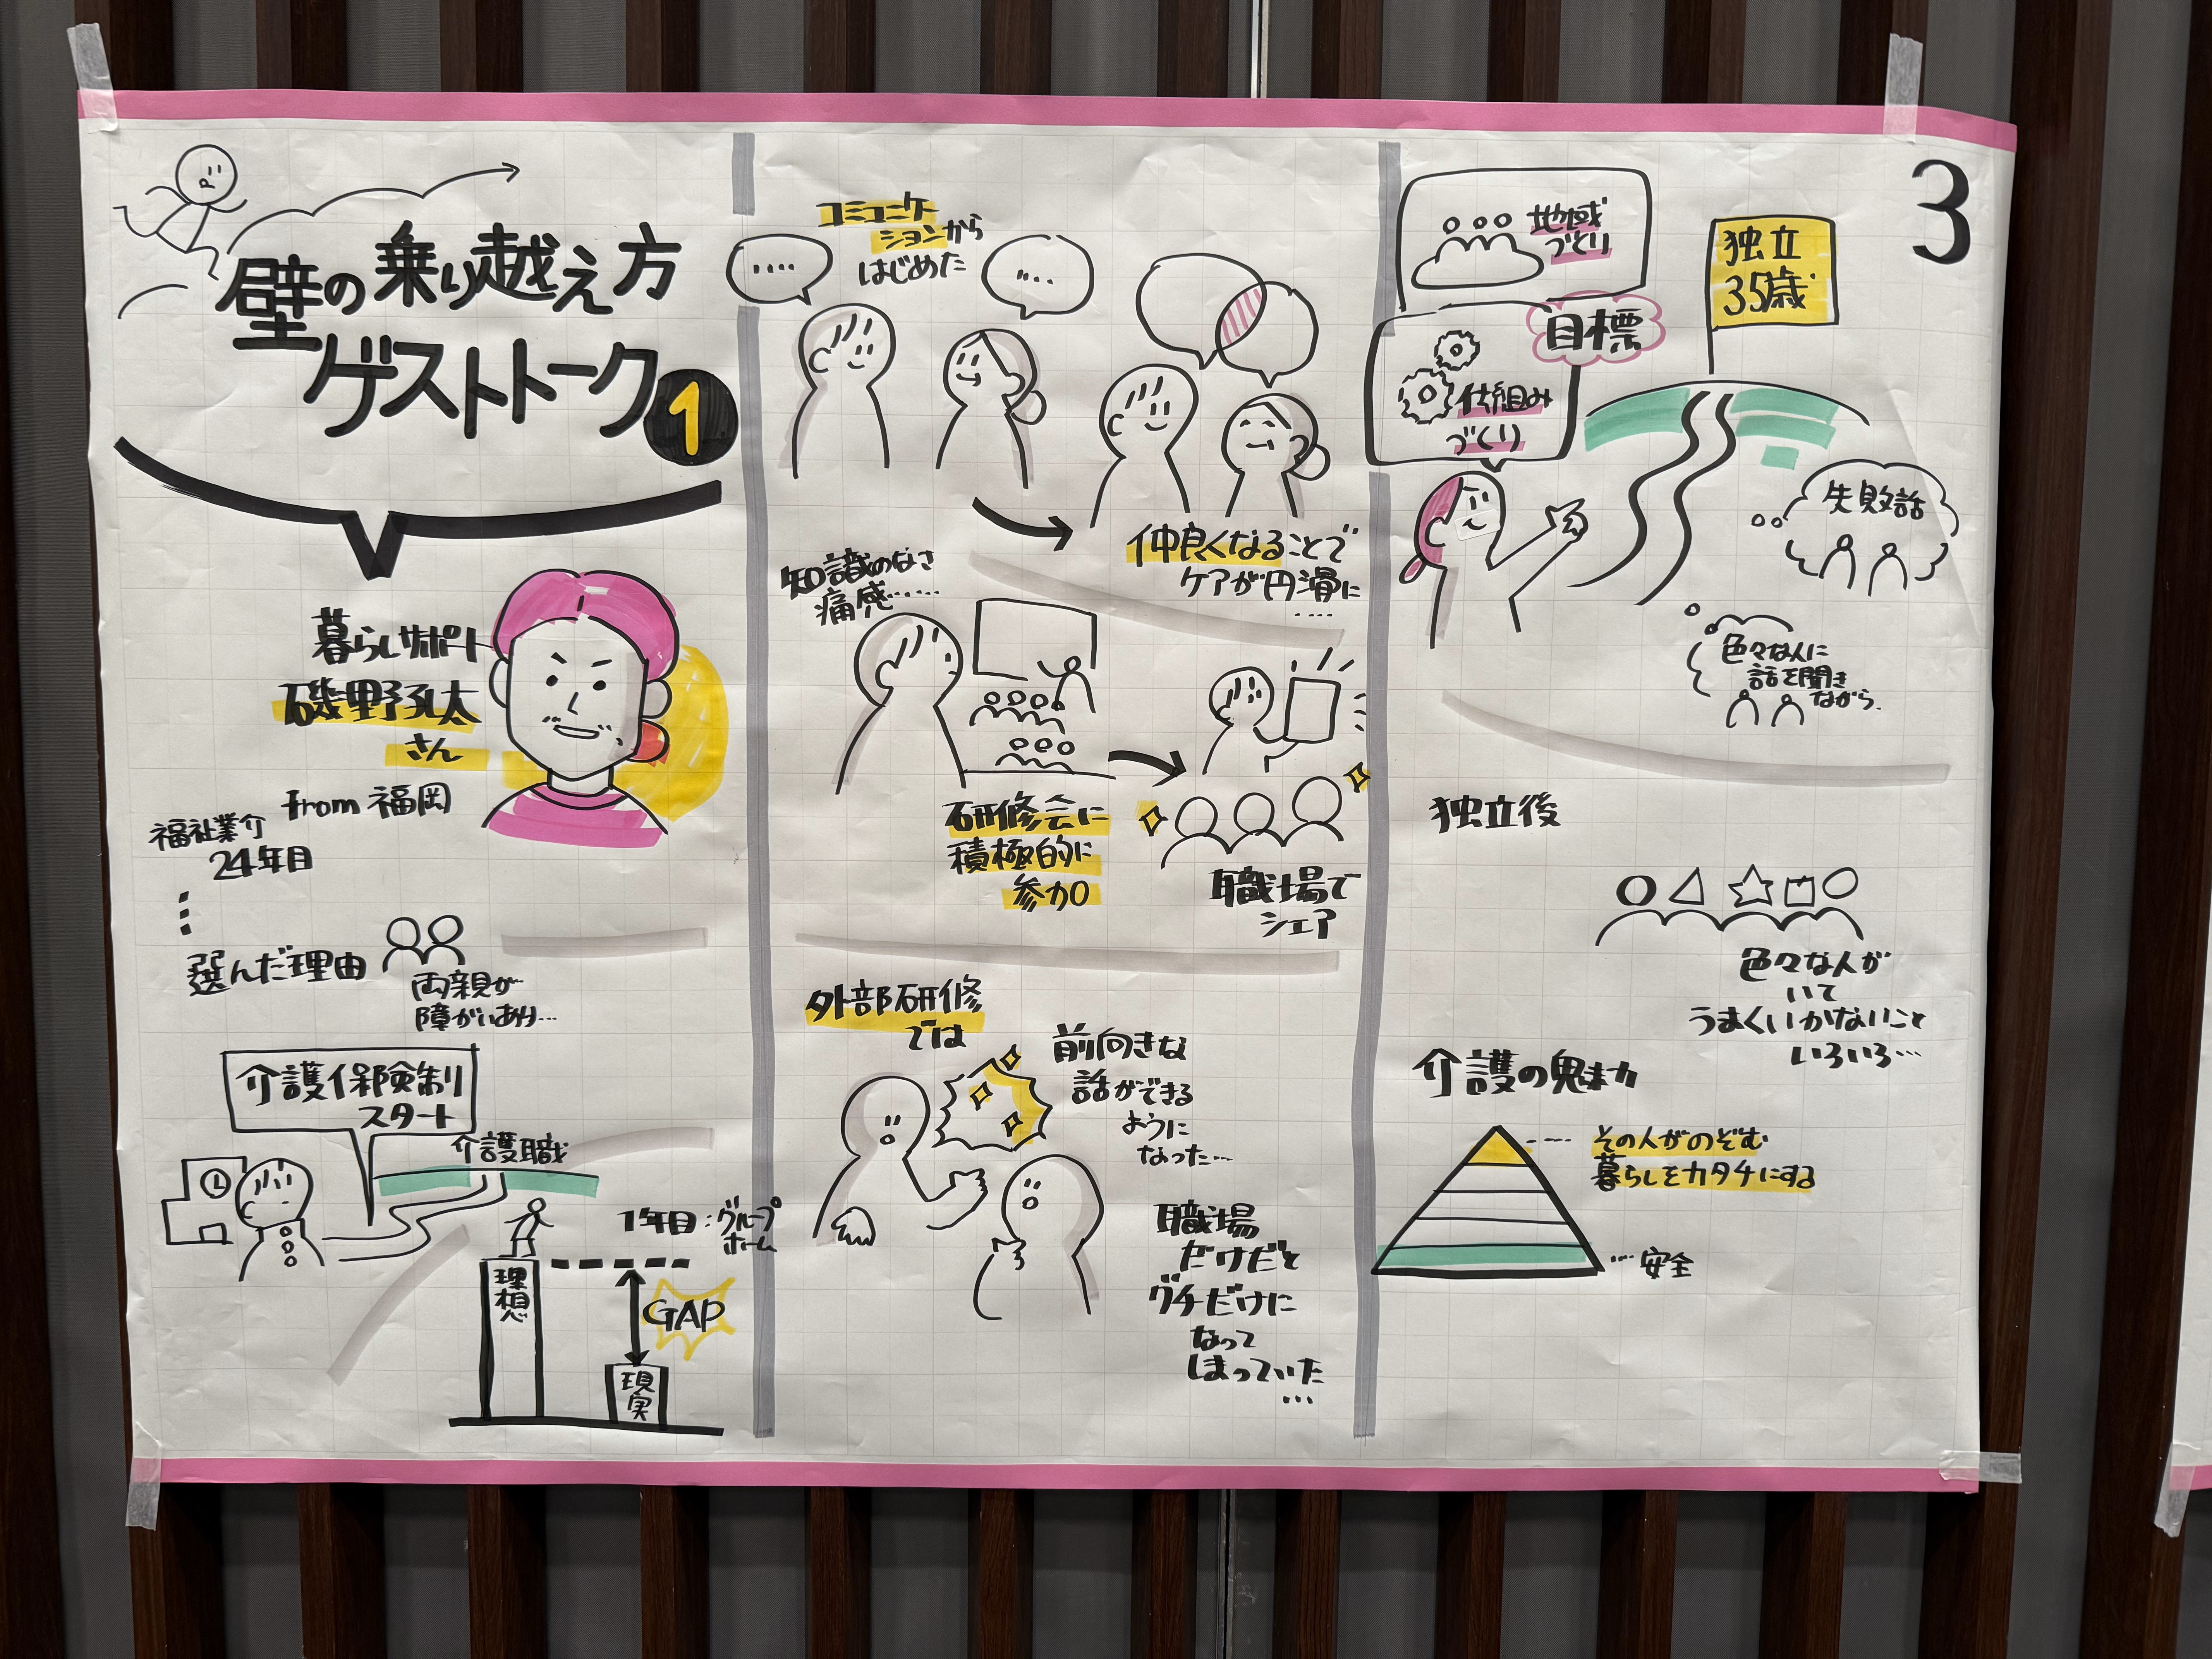 3
壁の乗り越え方
ゲストトーク
1
暮らしサポート
磯野
さん
from 福岡
福祉業介
24年目
選んだ理由
両親が
障がいあり…
介護保険制
スタート
介護職
1年目:グループ
ホーム
理想
GAP
現実
コミュニケー
ションから
はじめた
仲良くなることで
ケアが円滑に
....
知識のなさ
痛感……
研修会に
積極的に
参加
職場で
シェア
外部研修
では
前向きな
話ができる
ように
なった…
職場
だけだと
グチだけに
なって
しまっていた
...
地域
づくり
目標
仕組み
づくり
独立
35歳
失敗話
色々な人に
話を聞き
ながら.
独立後
色々な人が
いて
うまくいかないこと
いろいろ…
介護の魅力
その人がのぞむ
暮らしをカタチにする
安全